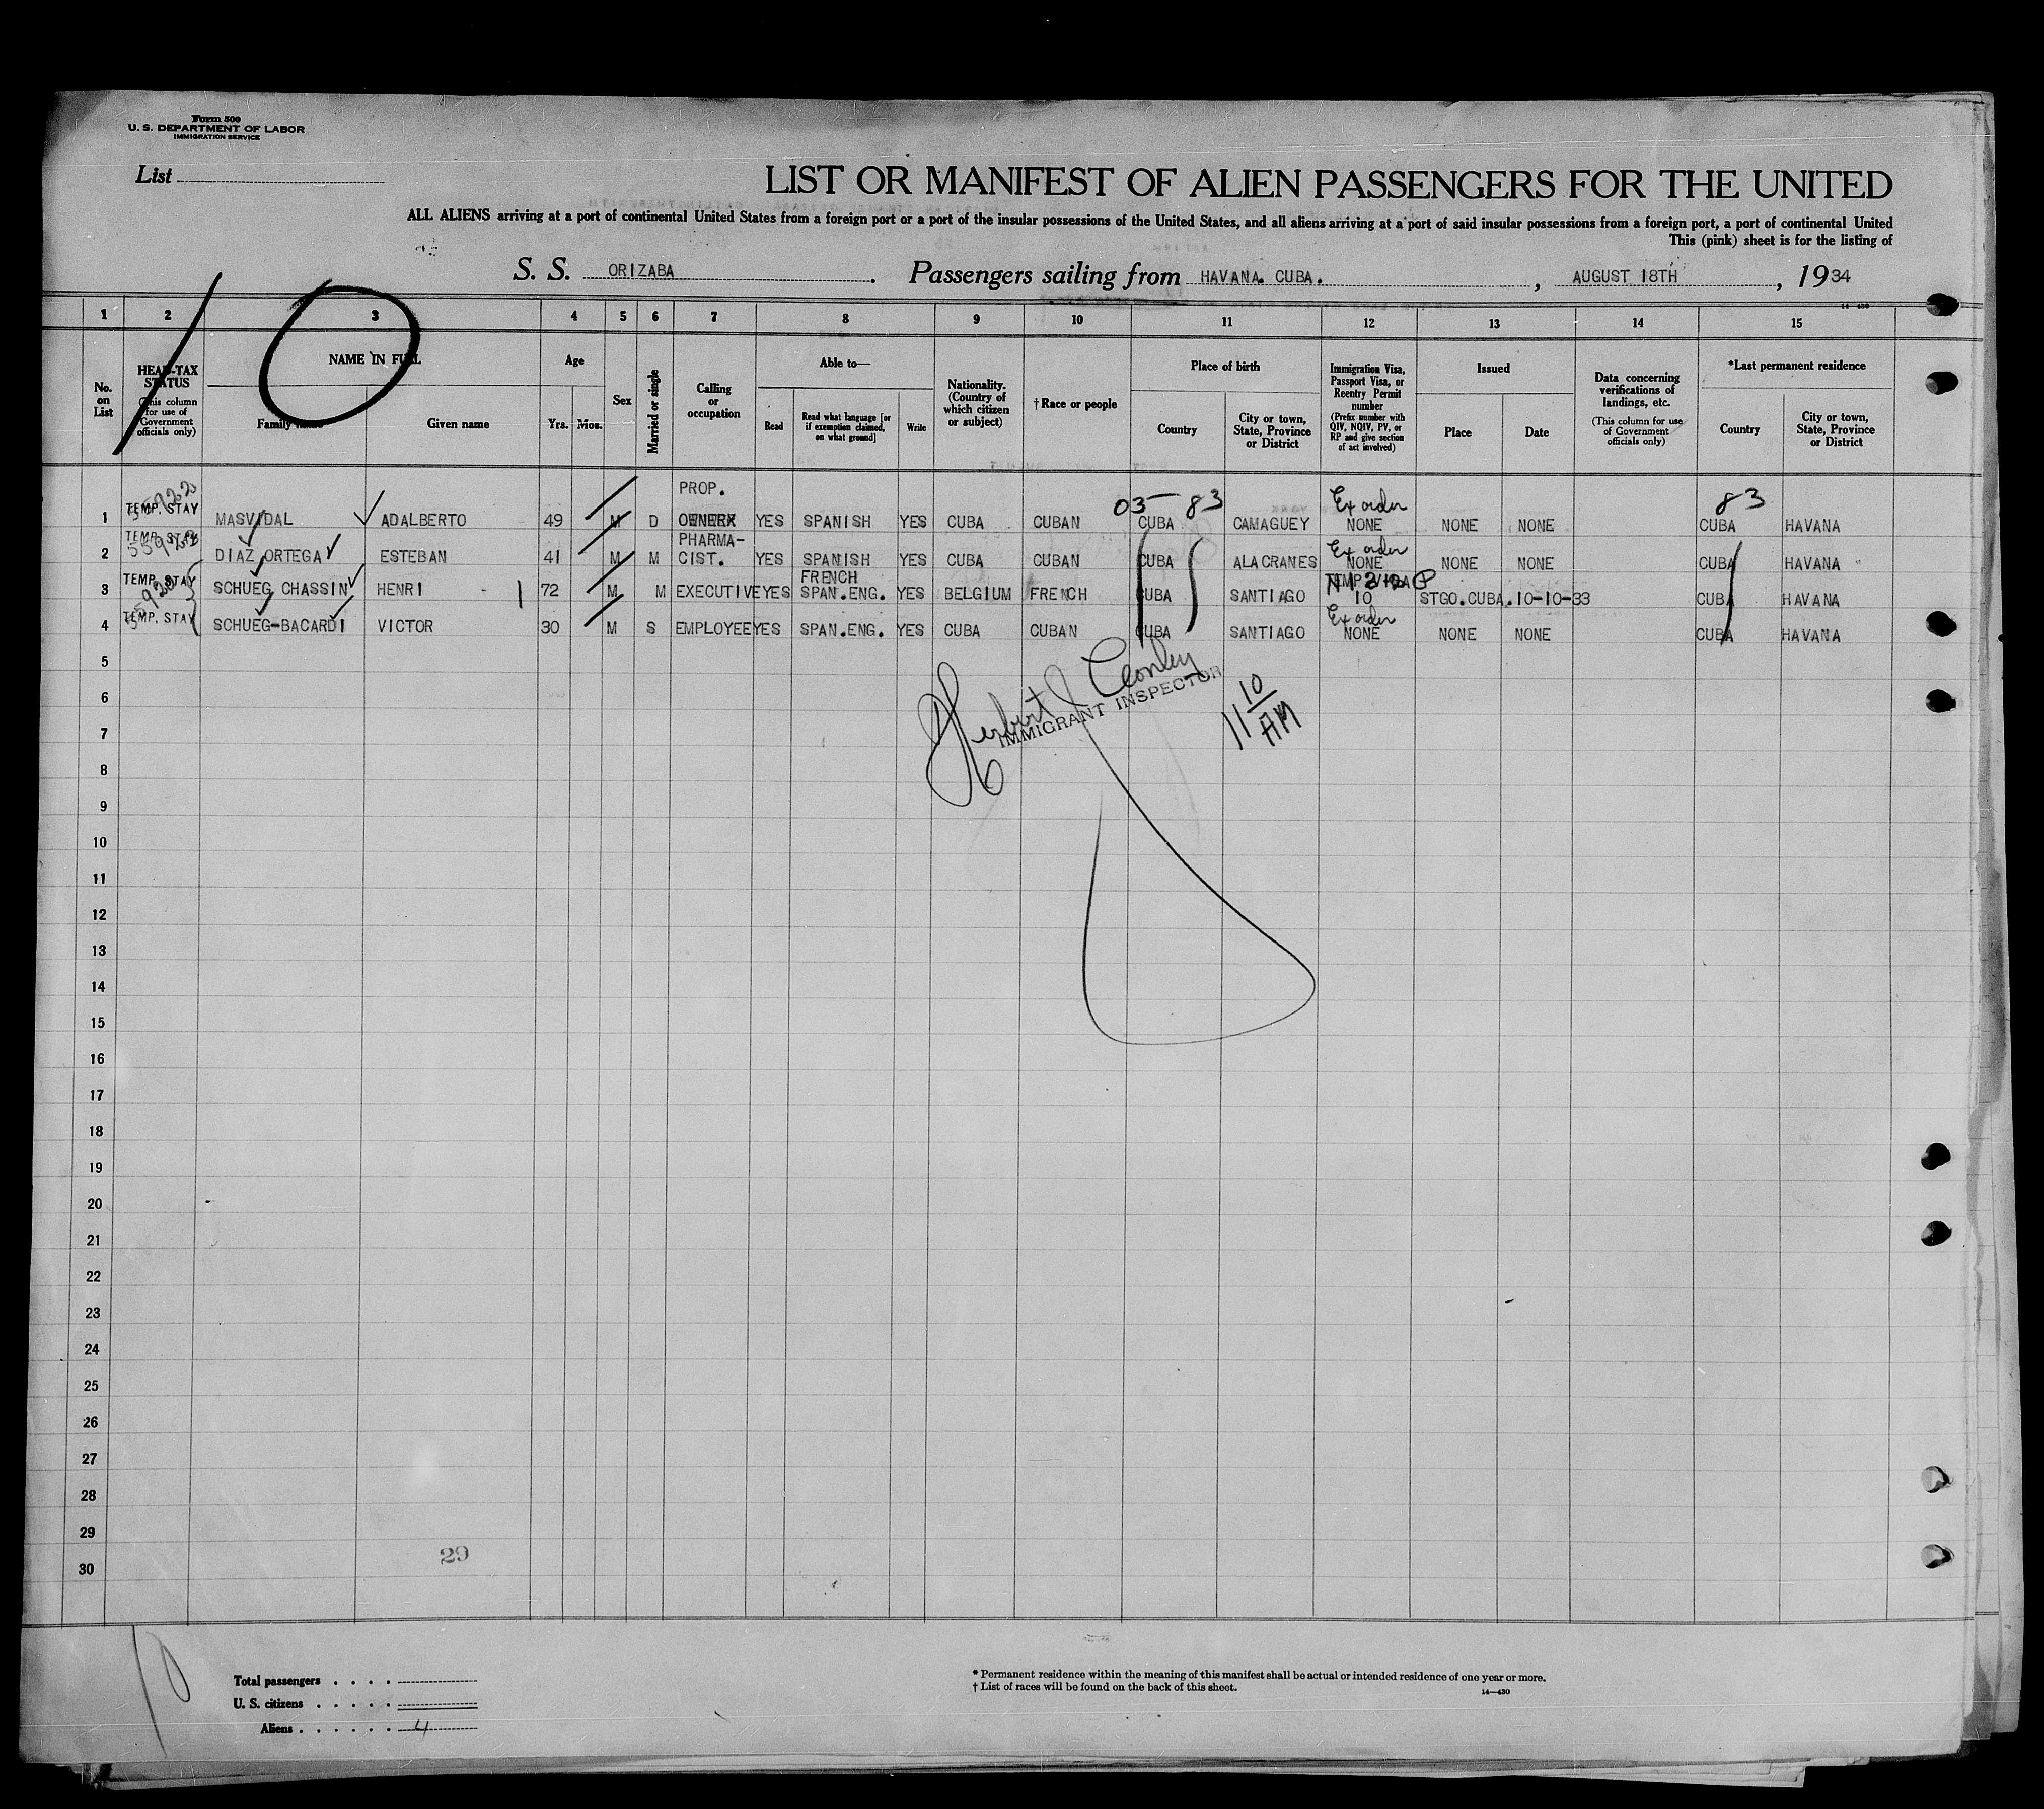 Form 500
U. S. DEPARTMENT OF LABOR
IMMIGRATION SERVICE
List
LIST OR MANIFEST OF ALIEN PASSENGERS FOR THE UNITED
ALL ALIENS arriving at a port of continental United States from a foreign port or a port of the insular possessions of the United States, and all aliens arriving at a port of said insular possessions from a foreign port, a port of continental United
This (pink) sheet is for the listing of
S. S. ORIZABA. Passengers sailing from HAVANA. CUBA. , AUGUST 18TH , 1934
14-430
10
1 2 3 4 5 6 7 8 9 10 11 12 13 14 15
No. on List
HEAD-TAX STATUS (This column for use of Government officials only)
NAME IN FULL
Family name Given name
Age
Yrs. Mos.
Sex
Married or single
Calling or occupation
Able to—
Read Read what language [or if exemption claimed, on what ground] Write
Nationality. (Country of which citizen or subject)
†Race or people
Place of birth
Country City or town, State, Province or District
Immigration Visa, Passport Visa, or Reentry Permit number (Prefix number with QIV, NQIV, PV, or RP and give section of act involved)
Issued
Place Date
Data concerning verifications of landings, etc. (This column for use of Government officials only)
*Last permanent residence
Country City or town, State, Province or District
PROP.
03-83 Ex order 83
1 TEMP. STAY MASVIDAL ADALBERTO 49 M D OWNER YES SPANISH YES CUBA CUBAN CUBA CAMAGUEY NONE NONE NONE CUBA HAVANA
PHARMA-
Ex order
2 TEMP. STAY DIAZ ORTEGA ESTEBAN 41 M M CIST. YES SPANISH YES CUBA CUBAN CUBA ALACRANES NONE NONE NONE CUBA HAVANA
FRENCH
3 TEMP. STAY SCHUEG CHASSIN HENRI 72 M M EXECUTIVE YES SPAN.ENG. YES BELGIUM FRENCH CUBA SANTIAGO 10 STGO.CUBA.10-10-33 CUBA HAVANA
Ex order
4 TEMP. STAY SCHUEG-BACARDI VICTOR 30 M S EMPLOYEE YES SPAN.ENG. YES CUBA CUBAN CUBA SANTIAGO NONE NONE NONE CUBA HAVANA
5
Herbert J Conley
IMMIGRANT INSPECTOR
11 10 AM
6
7
8
9
10
11
12
13
14
15
16
17
18
19
20
21
22
23
24
25
26
27
28
29
29
30
10
Total passengers . . . .
U. S. citizens . . . . .
Aliens . . . . . . 4
* Permanent residence within the meaning of this manifest shall be actual or intended residence of one year or more.
† List of races will be found on the back of this sheet.
14—430